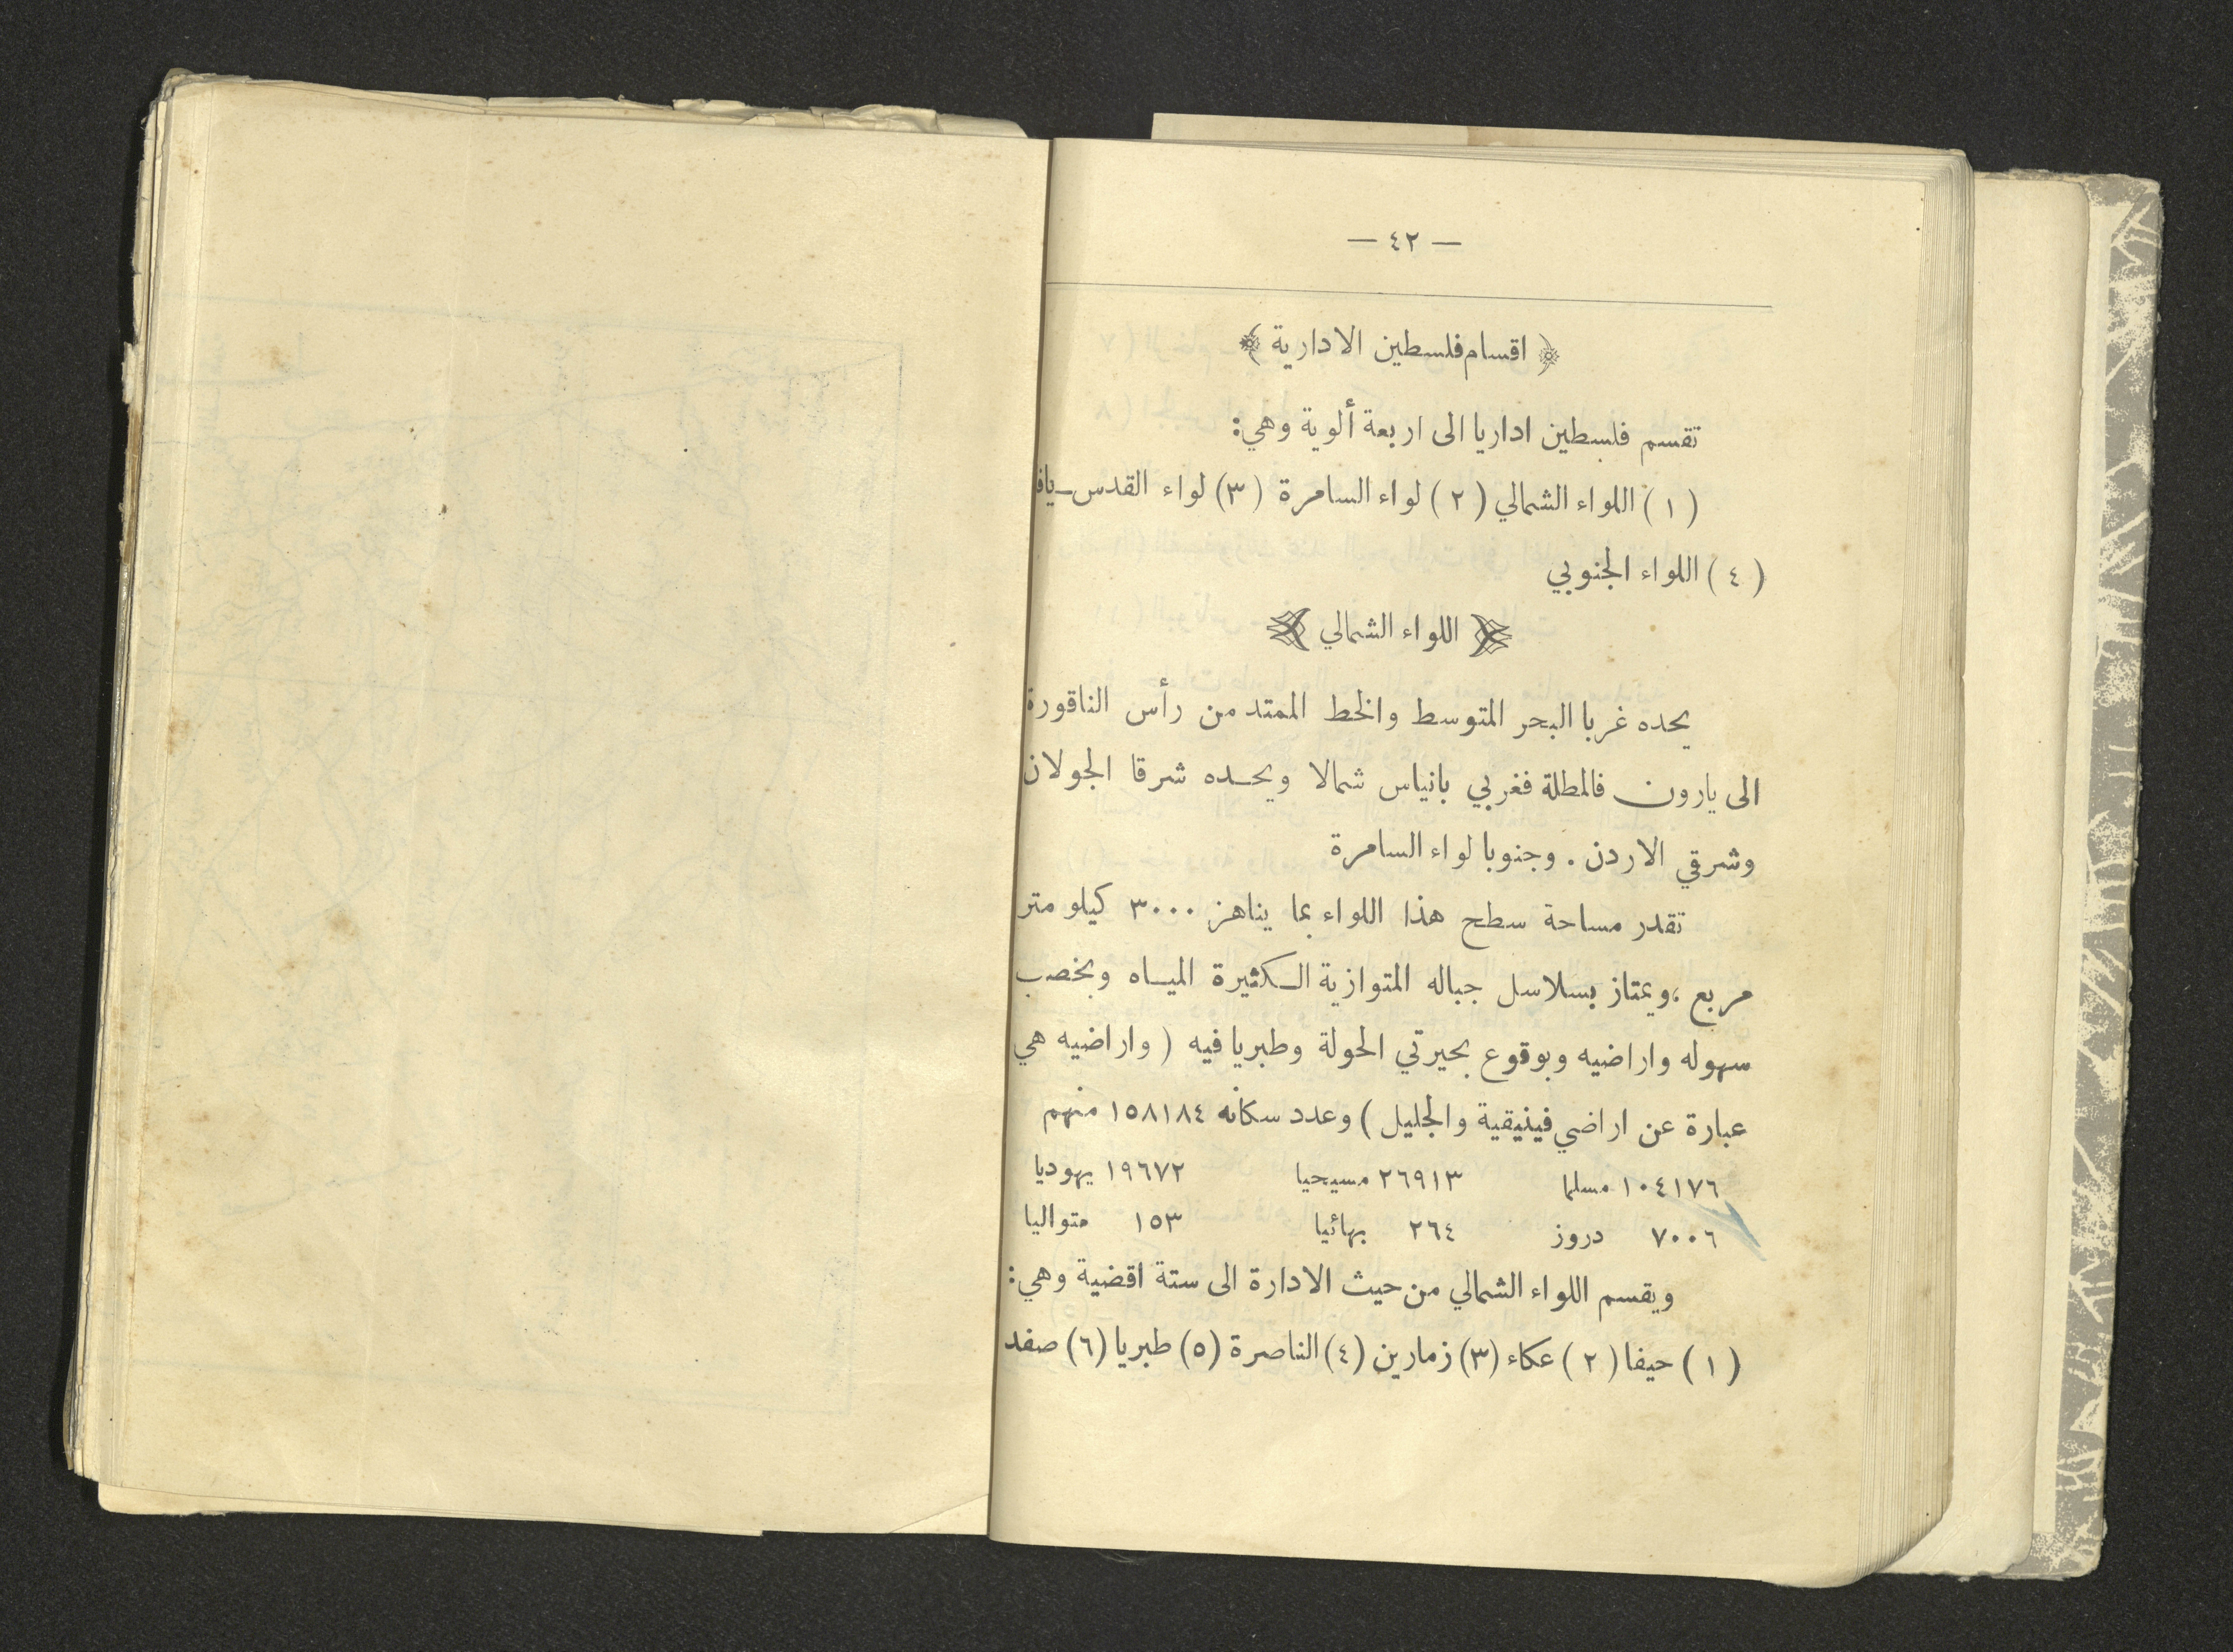 — ٤٢ —
﴿ اقسام فلسطين الادارية ﴾
تقسم فلسطين اداريا الى اربعة ألوية وهي:
(١) اللواء الشمالي (٢) لواء السامرة (٣) لواء القدس ـ يافا
(٤) اللواء الجنوبي
﴿ اللواء الشمالي ﴾
يحده غربا البحر المتوسط والخط الممتد من رأس الناقورة
الى يارون فالمطلة فغربي بانياس شمالا ويحـده شرقا الجولان
وشرقي الاردن . وجنوبا لواء السامرة
تقدر مساحة سطح هذا اللواء بما يناهز ٣٠٠٠ كيلو متر
مربع ، ويمتاز بسلاسل جباله المتوازية الـكثيرة الميـاه وبخصب
سهوله واراضيه وبوقوع بحيرتي الحولة وطبريا فيه ( واراضيه هي
عبارة عن اراضي فينيقية والجليل ) وعدد سكانه ١٥٨١٨٤ منهم
١٠٤١٧٦ مسلما ٢٦٩١٣ مسيحيا ١٩٦٧٢ يهوديا
٧٠٠٦ دروز ٢٦٤ بهائيا ١٥٣ متواليا
ويقسم اللواء الشمالي من حيث الادارة الى ستة اقضية وهي:
(١) حيفا (٢) عكاء (٣) زمارين (٤) الناصرة (٥) طبريا (٦) صفد